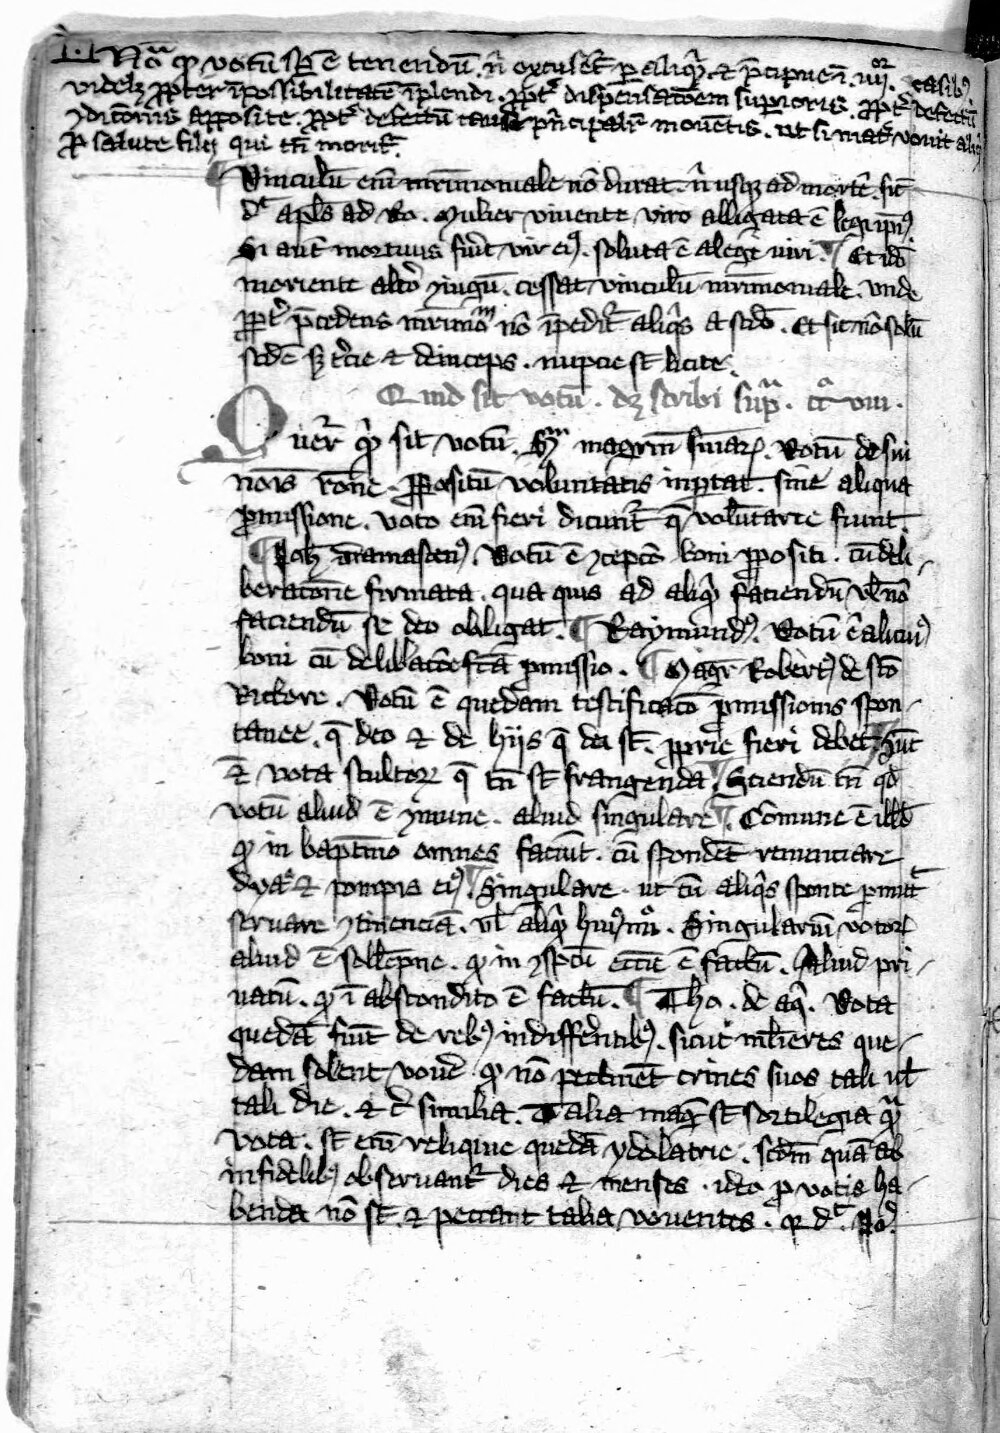 .I. Nōᵃ qͥ votū sꝑ ē tenendū. n̄ excuset͛ ꝑ aliqͥd. ⁊ p̄cipue ī. iiijᵒʳ casibꝰ
videlꝫ ꝓpter īpossibilitatē īplendi. ꝓpt͛ dispensatōem superioris. ꝓpt͛ defectū
ꝯditōnis apposite. ꝓpt͛ defectū cause pͥncipalit͛ mouētis. ut si mat͛ vouit aliqͥd
ꝓ salute filij qui tn̄ morit͛.
¶ Vinculū eni mr̄imoniale nō durat. n̄ usqꝫ ad mortē. sic̄
dᵗ apl̄s ad Ro. Mulier vivente viro alligata ē legi ipiꝰ.
Si aut̄ mortuus fu͛it vir eiꝰ. soluta ē a lege viri. ¶ Et idō
moriente alt͛o ꝯiugū. cessat vinculū mr̄imoniale. vnde
ꝓpt͛ p̄cedens mr̄imōᵐ nō īpedit͛ aliqͥs a sc̄do. Et sic nō solū
sc̄de sꝫ t͛cie ⁊ deinceps. nupcie st̄ licite.
Quid sit votū. dꝫ scribi supᵃ. cᵒ viii.
Quer͛ qͥd sit votū. Sᵐ magr̄m sn̄iaꝝ. Votū de sui
nois rōne. ꝓpositū voluntatis inportat. sine aliqua
ꝓmissione. voto eni fieri dicunt͛ q̄ volūtarie fiunt.
¶ Joh̄ damascenꝰ. Votū ē ꝯceptō boni ꝓpositi. cū deli-
beratōne firmata. qua quis ad aliqͥd faciendū vl̄ nō
faciendū se deo obligat. ¶ Raymundꝰ. Votū ē alicuiꝰ
boni cū delib͛atōe fc̄a ꝓmissio. ¶ Magr̄ Robertꝰ de sc̄o
Victore. Votū ē quedam testificatō ꝓmissionis spon-
tanee. q̄ deo ⁊ de hijs q̄ dei st̄. ꝓprie fieri debet. ¶ Sūt
⁊ vota stultoꝝ q̄ tn̄ st̄ frangenda. ¶ Sciendū tn̄ qd̄
votū aliud ē ꝯmune. aliud singulare. ¶ Cōmune ē illd̄
qͥ in baptismo omnes faciūt. cū spondēt renunciare
dyaᵒ ⁊ pompis eiꝰ. ¶ Singulare. ut cū aliqͥs sponte ꝓmitt͛
servare ꝯtinenciā. vl̄ aliqͥd huiꝰmōi. Singulariū votoꝝ
aliud ē sollēpne. qͥ in ꝯspc̄u eccl̄ie ē factū. Aliud pri-
vatū. qͥ ī abscondito ē factū. ¶ Tho. de aqͥ. Vota
quedā fiūt de rebꝰ indiffe͛ntibꝰ. sicut ml̄ieres que-
dam solent vove͛ qͥ nō pectinēt crines suos tali vl̄
tali die. ⁊ c͛ similia. Talia magͥ st̄ sortilegia qͣ
vota. st̄ eni reliquie quedā ydolatrie. scd̄m quā ab
infidelibꝰ observant͛ dies ⁊ menses. ideo ꝓ votis ha-
benda nō st̄. ⁊ peccant talia voventes. qͥ dᵗ.